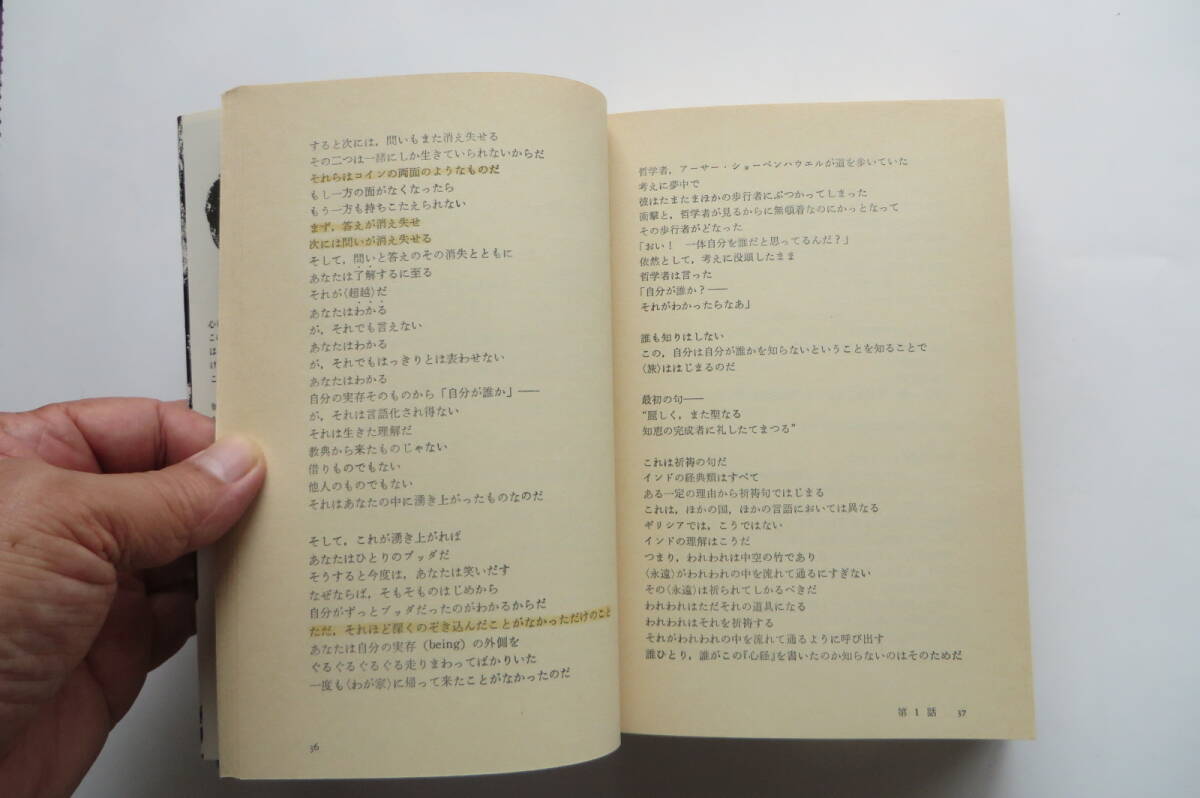 すると次には，問いもまた消え失せる
その二つは一緒にしか生きていられないからだ
それらはコインの両面のようなものだ
もし一方の面がなくなったら
もう一方も持ちこたえられない
まず，答えが消え失せ
次には問いが消え失せる
そして，問いと答えのその消失とともに
あなたは了解するに至る
それが〈超越〉だ
あなたはわかる
が，それでも言えない
あなたはわかる
が，それでもはっきりとは表わせない
あなたはわかる
自分の実存そのものから「自分が誰か」——
が，それは言語化され得ない
それは生きた理解だ
教典から来たものじゃない
借りものでもない
他人のものでもない
それはあなたの中に湧き上がったものなのだ
そして，これが湧き上がれば
あなたはひとりのブッダだ
そうすると今度は，あなたは笑いだす
なぜならば，そもそものはじめから
自分がずっとブッダだったのがわかるからだ
ただ，それほど深くのぞき込んだことがなかっただけのこと
あなたは自分の実存（being）の外側を
ぐるぐるぐるぐる走りまわってばかりいた
一度も〈わが家〉に帰って来たことがなかったのだ
36
哲学者，アーサー・ショーペンハウエルが道を歩いていた
考えに夢中で
彼はたまたまほかの歩行者にぶつかってしまった
衝撃と，哲学者が見るからに無頓着なのにかっとなって
その歩行者がどなった
「おい！　一体自分を誰だと思ってるんだ？」
依然として，考えに没頭したまま
哲学者は言った
「自分が誰か？——
それがわかったらなあ」
誰も知りはしない
この，自分は自分が誰かを知らないということを知ることで
〈旅〉ははじまるのだ
最初の句——
“麗しく，また聖なる
知恵の完成者に礼したてまつる”
これは祈祷の句だ
インドの経典類はすべて
ある一定の理由から祈祷句ではじまる
これは，ほかの国，ほかの言語においては異なる
ギリシアでは，こうではない
インドの理解はこうだ
つまり，われわれは中空の竹であり
〈永遠〉がわれわれの中を流れて通るにすぎない
その〈永遠〉は祈られてしかるべきだ
われわれはただそれの道具になる
われわれはそれを祈祷する
それがわれわれの中を流れて通るように呼び出す
誰ひとり，誰がこの『心経』を書いたのか知らないのはそのためだ
第1話　37